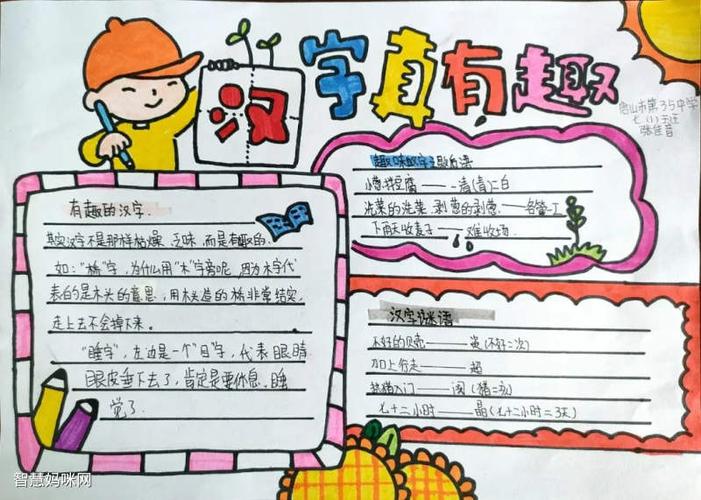 汉字真有趣
唐山市第35中学
张佳音
有趣的汉字.
其实汉字不是那样枯燥、乏味,而是有趣的.
如:"桥"字,为什么用"木"字旁呢,因为木字代
表的是木头的意思,用木头造的桥非常结实,
走上去不会掉下来。
"睡字",左边是一个"目"字,代表眼睛
眼皮垂下去了,肯定是要休息、睡
觉了.
趣味汉字歇后语
小葱拌豆腐——一清(青)二白
洗菜的洗菜,剥葱的剥葱——各管一工
下雨天收麦子——难收场.
汉字谜语
不好的贝壳——
加口行走——超
入门——阅
七十二小时——晶(七十二小时=3天)
智慧妈咪网